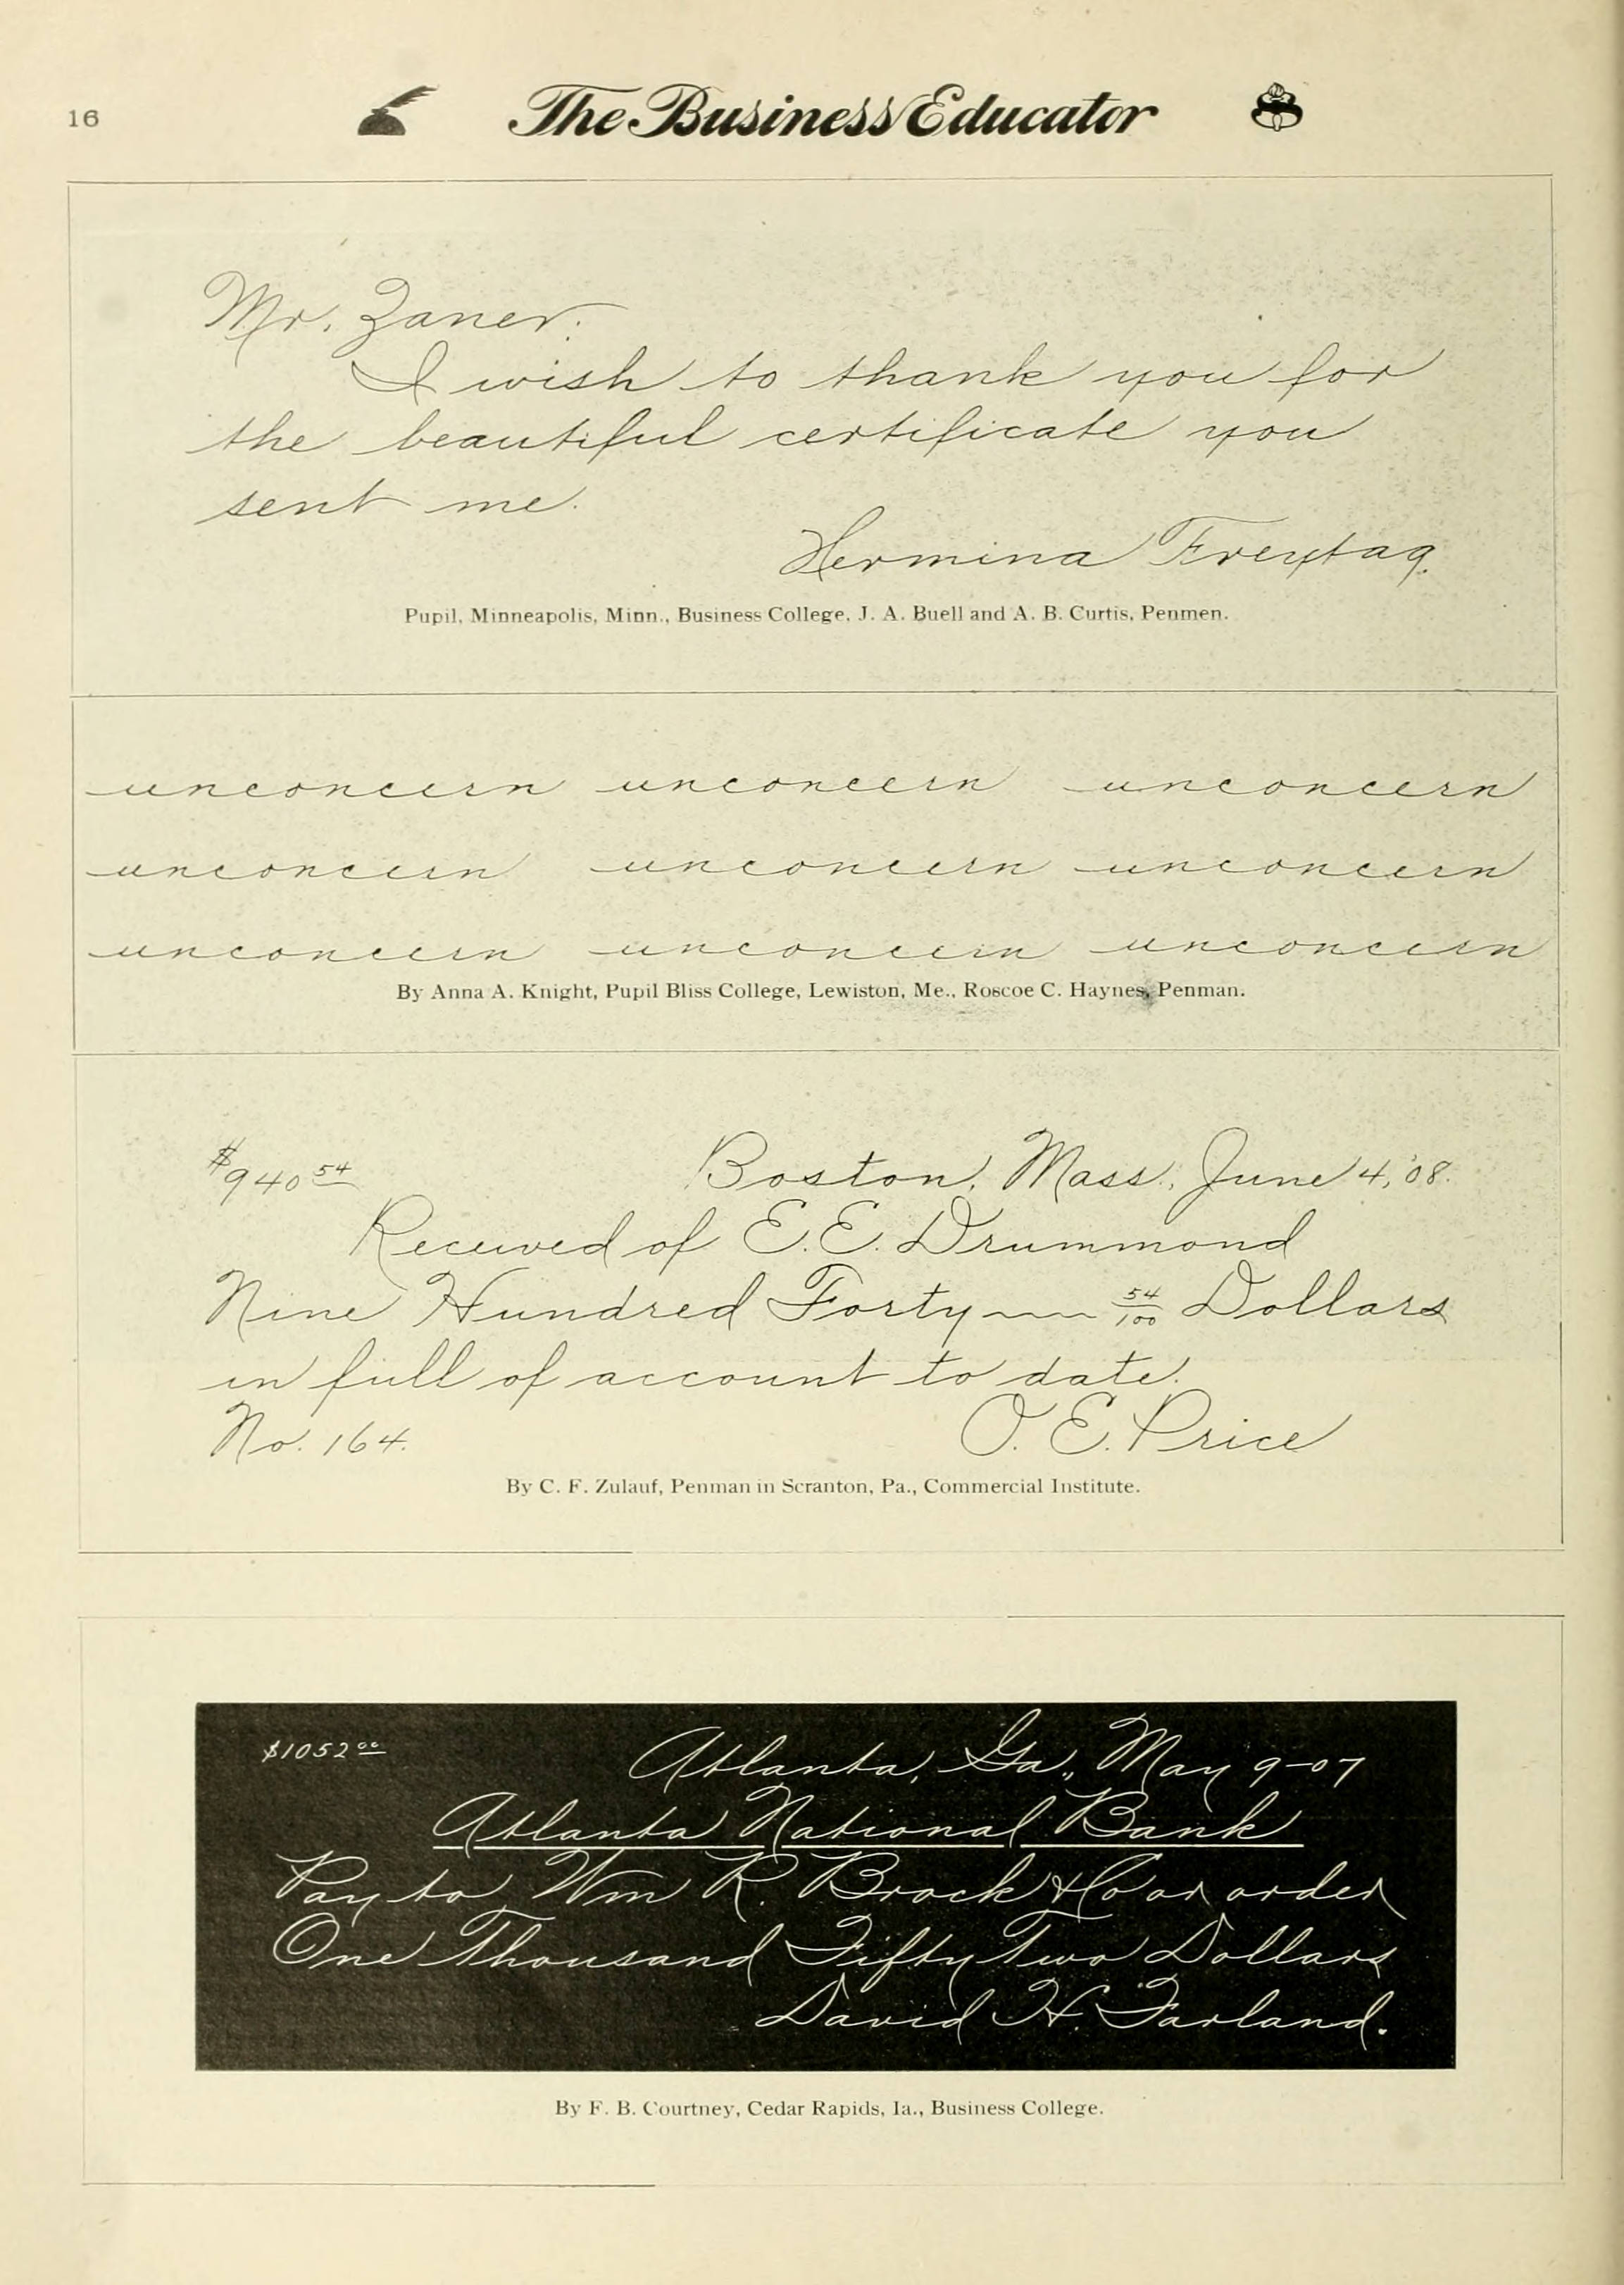 16
The Business Educator
Mr. Zaner:
I wish to thank you for
the beautiful certificate you
sent me.
Hermina Freytag.
Pupil, Minneapolis, Minn., Business College, J. A. Buell and A. B. Curtis, Penmen.
unconcern unconcern unconcern
unconcern unconcern unconcern
unconcern unconcern unconcern
By Anna A. Knight, Pupil Bliss College, Lewiston, Me., Roscoe C. Haynes, Penman.
$940 54 Boston, Mass., June 4, '08.
Received of E. E. Drummond
Nine Hundred Forty — 54/100 Dollars
in full of account to date.
No. 164. O. E. Price
By C. F. Zulauf, Penman in Scranton, Pa., Commercial Institute.
$1052 00 Atlanta, Ga., May 9-07
Atlanta National Bank
Pay to Wm R. Brock & Co or order
One Thousand Fifty Two Dollars
David H. Farland.
By F. B. Courtney, Cedar Rapids, Ia., Business College.